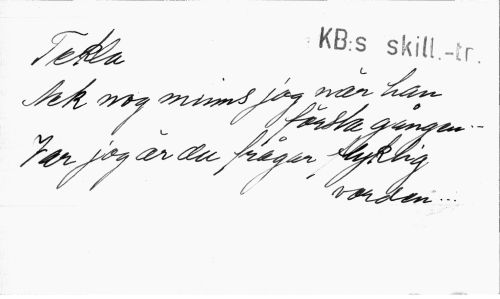 KB:s skill.-tr.
Tekla
Ack nog minns jag när han
första gången..-
Var jag är du frågar, flyktig
vorden...